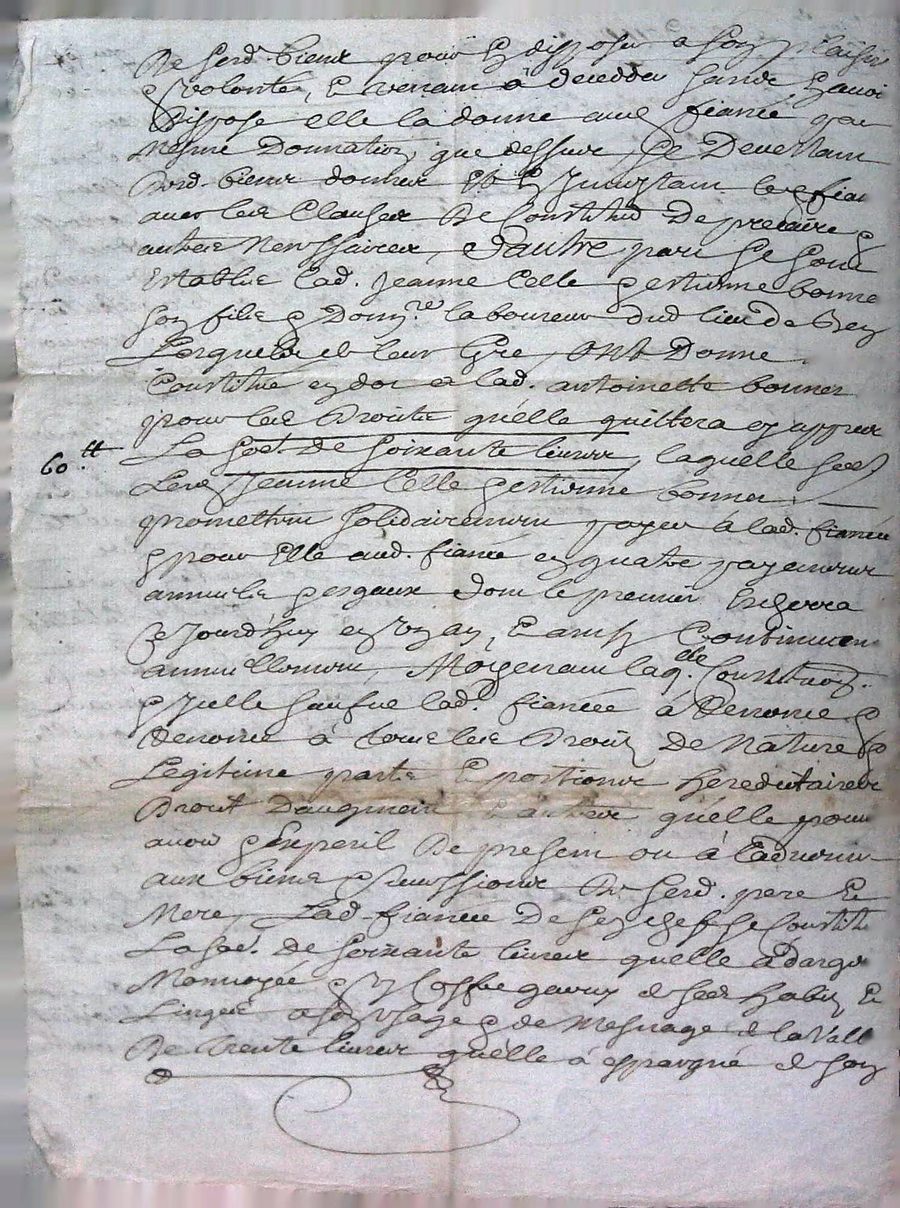 de sesd. biens pour en disposer a son plaisir
et volonte, et venant a decedder sans en avoir
disposé elle la donne aud. fiancé par
mesme donnation que dessus, se devetant
desd. biens donnés et en investant led. fian
avec les clauses de constitut de precaire et
autres necessaires, et d'autre part se sont
establis lad. Jeanne Celle et estienne bonne
son fils et Dom.re laboureur dud. lieu de
Lesquels de leur gre, ont donné
Constitué en dot a lad. antoinette bonnet
pour les droits qu'elle quittera cy appres
60 ₶ La so.e de soixante livres, laquelle so.e
Lesd. Jeanne Celle et estienne bonnet
promettent solidairement payer a lad. fiancée
et pour elle aud. fiancé en quatre payements
annuels et esgaux dont le premier se fera
ce jourd'huy en un an, et ainsy continuant
annuellement, Moyenant laq.lle Constituon.
et icelle saufve lad. fiancée a renoncé et
renonce a tous les droits de Nature
Legitime parts et portions hereditaires
droit d'augment et autres qu'elle peut
avoir et esperer de present ou a l'advenir
aux biens et successions de sesd. pere et
Mere, Lad. fiancée de son chef se Constit
La so.e de soixante livres qu'elle a d'arge
Monnoyée et un coffre garny de ses habits et
Linges a son usage et de mesnage de la vall
de trente livres qu'elle a esparqué de son